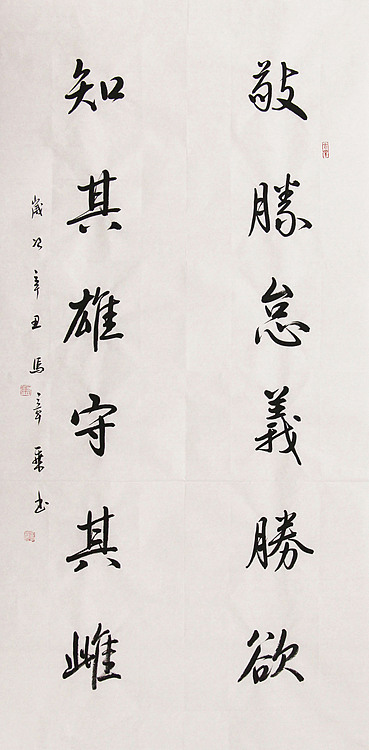 敬勝怠義勝欲
知其雄守其雌
歲次辛丑馬章乘書